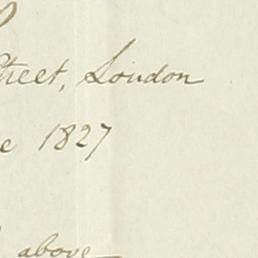 Street, London
e 1827
above